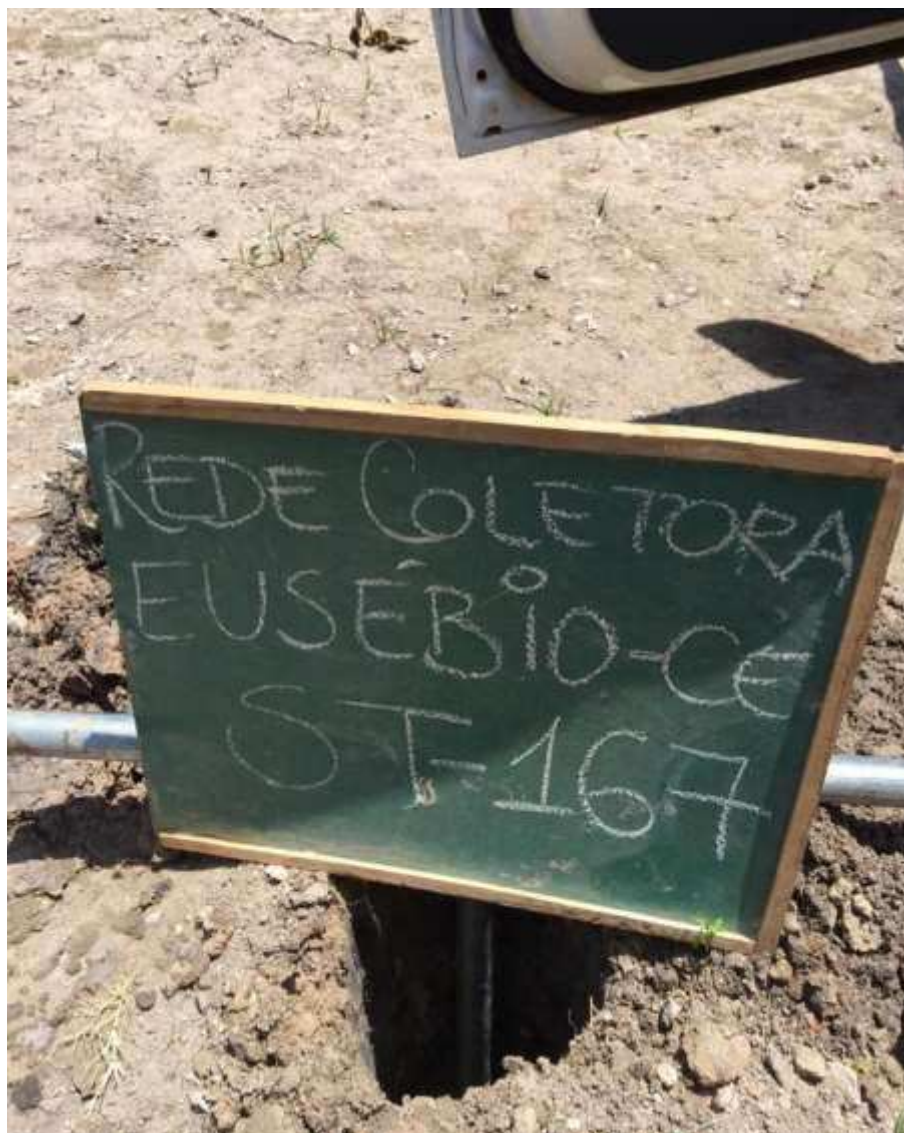 REDE COLETORA
EUSÉBIO-CE
ST-167